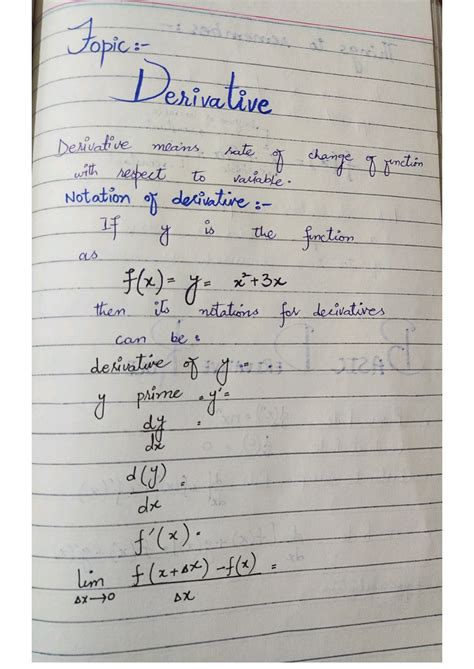 Topic:-
Derivative
Derivative means rate of change of function
with respect to variable.
Notation of derivative:-
If y is the function
as
f(x) = y = x²+3x
then its notations for derivatives
can be:
derivative of y =
y prime = y' =
dy/dx =
d(y)/dx =
f'(x) =
lim Δx→0 f(x+Δx) - f(x) / Δx =